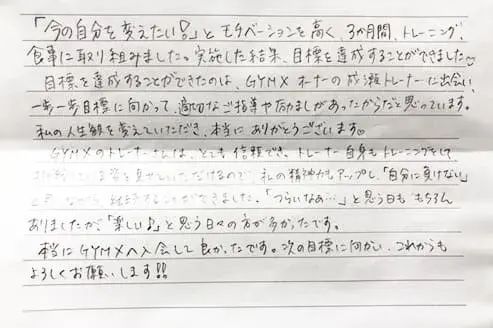 「今の自分を変えたい!」と モチベーションを高く、3か月間、トレーニング、
食事に取り組みました。実施した結果、目標を達成することができました♡
目標を達成することができたのは、GYMX オーナーの成瀬トレーナーに出会い、
一歩一歩目標に向かって、適切なご指導や励ましがあったからだと思っています。
私の人生観を変えていただき、本当に ありがとうございます♡
GYMXのトレーナーさんは、とても 信頼でき、トレーナー自身もトレーニングをして
姿を見せていただけるので、私の精神力もアップし、「自分に負けない」
継続することができました。「つらいなぁ…」と思う日も もちろん
ありましたが、「楽しい♪」と思う日々の方が多かったです。
本当にGYMXへ入会して良かったです。次の目標に向かい、これからも
よろしくお願いします!!